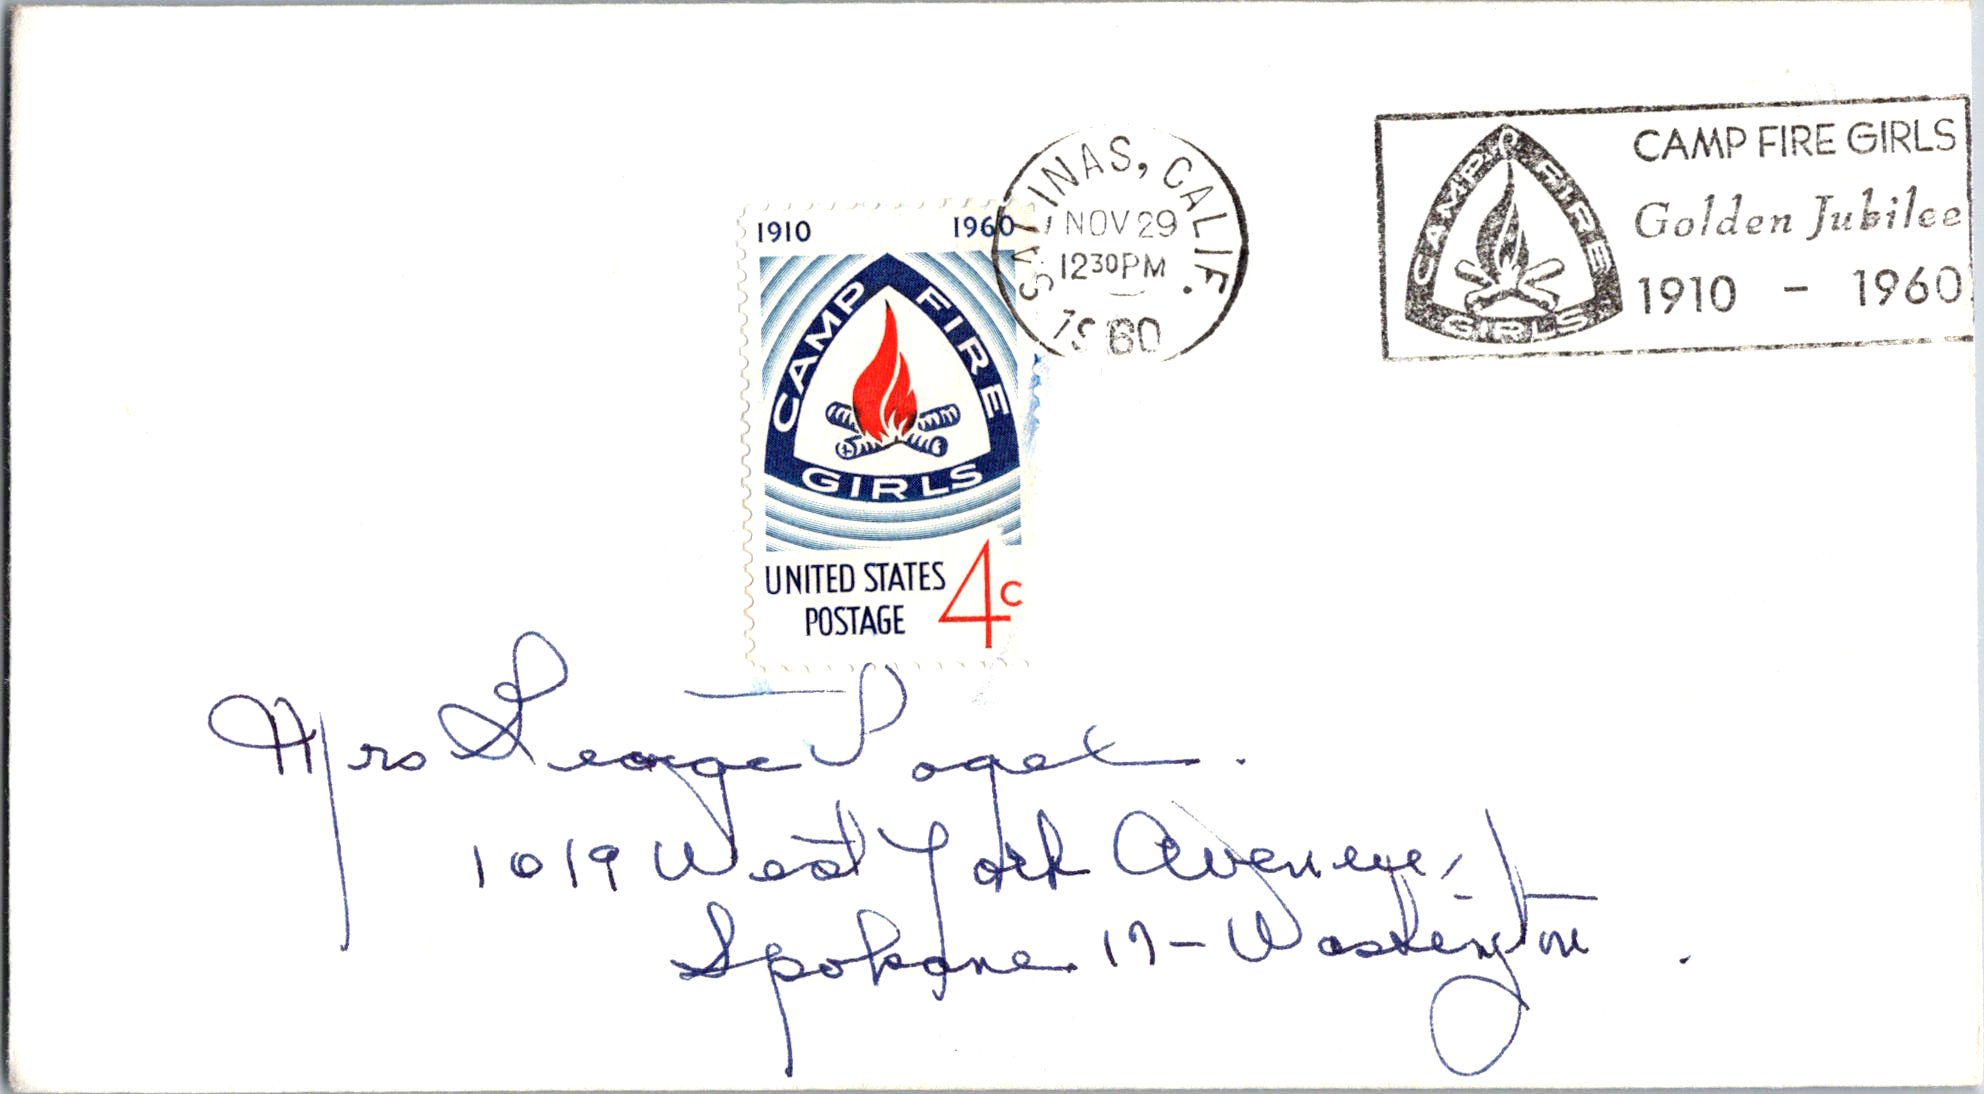 SALINAS, CALIF.
NOV 29
12 30 PM
1960
CAMP FIRE GIRLS
CAMP FIRE GIRLS
Golden Jubilee
1910 - 1960
1910 1960
CAMP FIRE GIRLS
UNITED STATES
POSTAGE
4c
Mrs George Pogel.
1019 West York Avenue,
Spokane 17 - Washington.